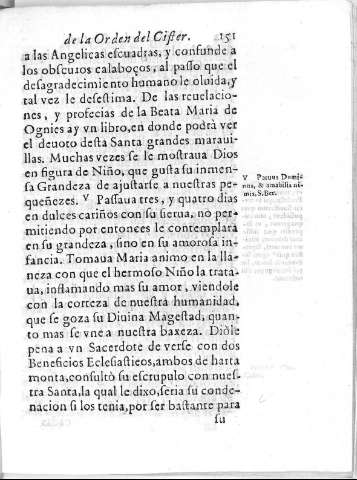 de la Orden del Cister. 151
a las Angelicas escuadras, y confunde a
los obscuros calaboços, al passo que el
desagradecimiento humano le oluida, y
tal vez le desestima. De las reuelacio-
nes, y profecias de la Beata Maria de
Ognies ay vn libro, en donde podrà ver
el deuoto desta Santa grandes maraui-
llas. Muchas vezes se le mostraua Dios
en figura de Niño, que gusta su inmen-
sa Grandeza de ajustarse a nuestras pe-
queñezes. V Passaua tres, y quatro dias
en dulces cariños con su sierua, no per-
mitiendo por entonces le contemplara
en su grandeza, sino en su amorosa in-
fancia. Tomaua Maria animo en la lla-
neza con que el hermoso Niño la trata-
ua, instamando mas su amor, viendole
con la corteza de nuestra humanidad,
que se goza su Diuina Magestad, quan-
to mas se vne a nuestra baxeza. Diòle
pena a vn Sacerdote de verse con dos
Beneficios Eclesiasticos, ambos de harta
monta, consultò su escrupulo con nues-
tra Santa, la qual le dixo, seria su conde-
nacion si los tenia, por ser bastante para
su
V Paruus Dominus, & amabilis nimis. S. Ber.